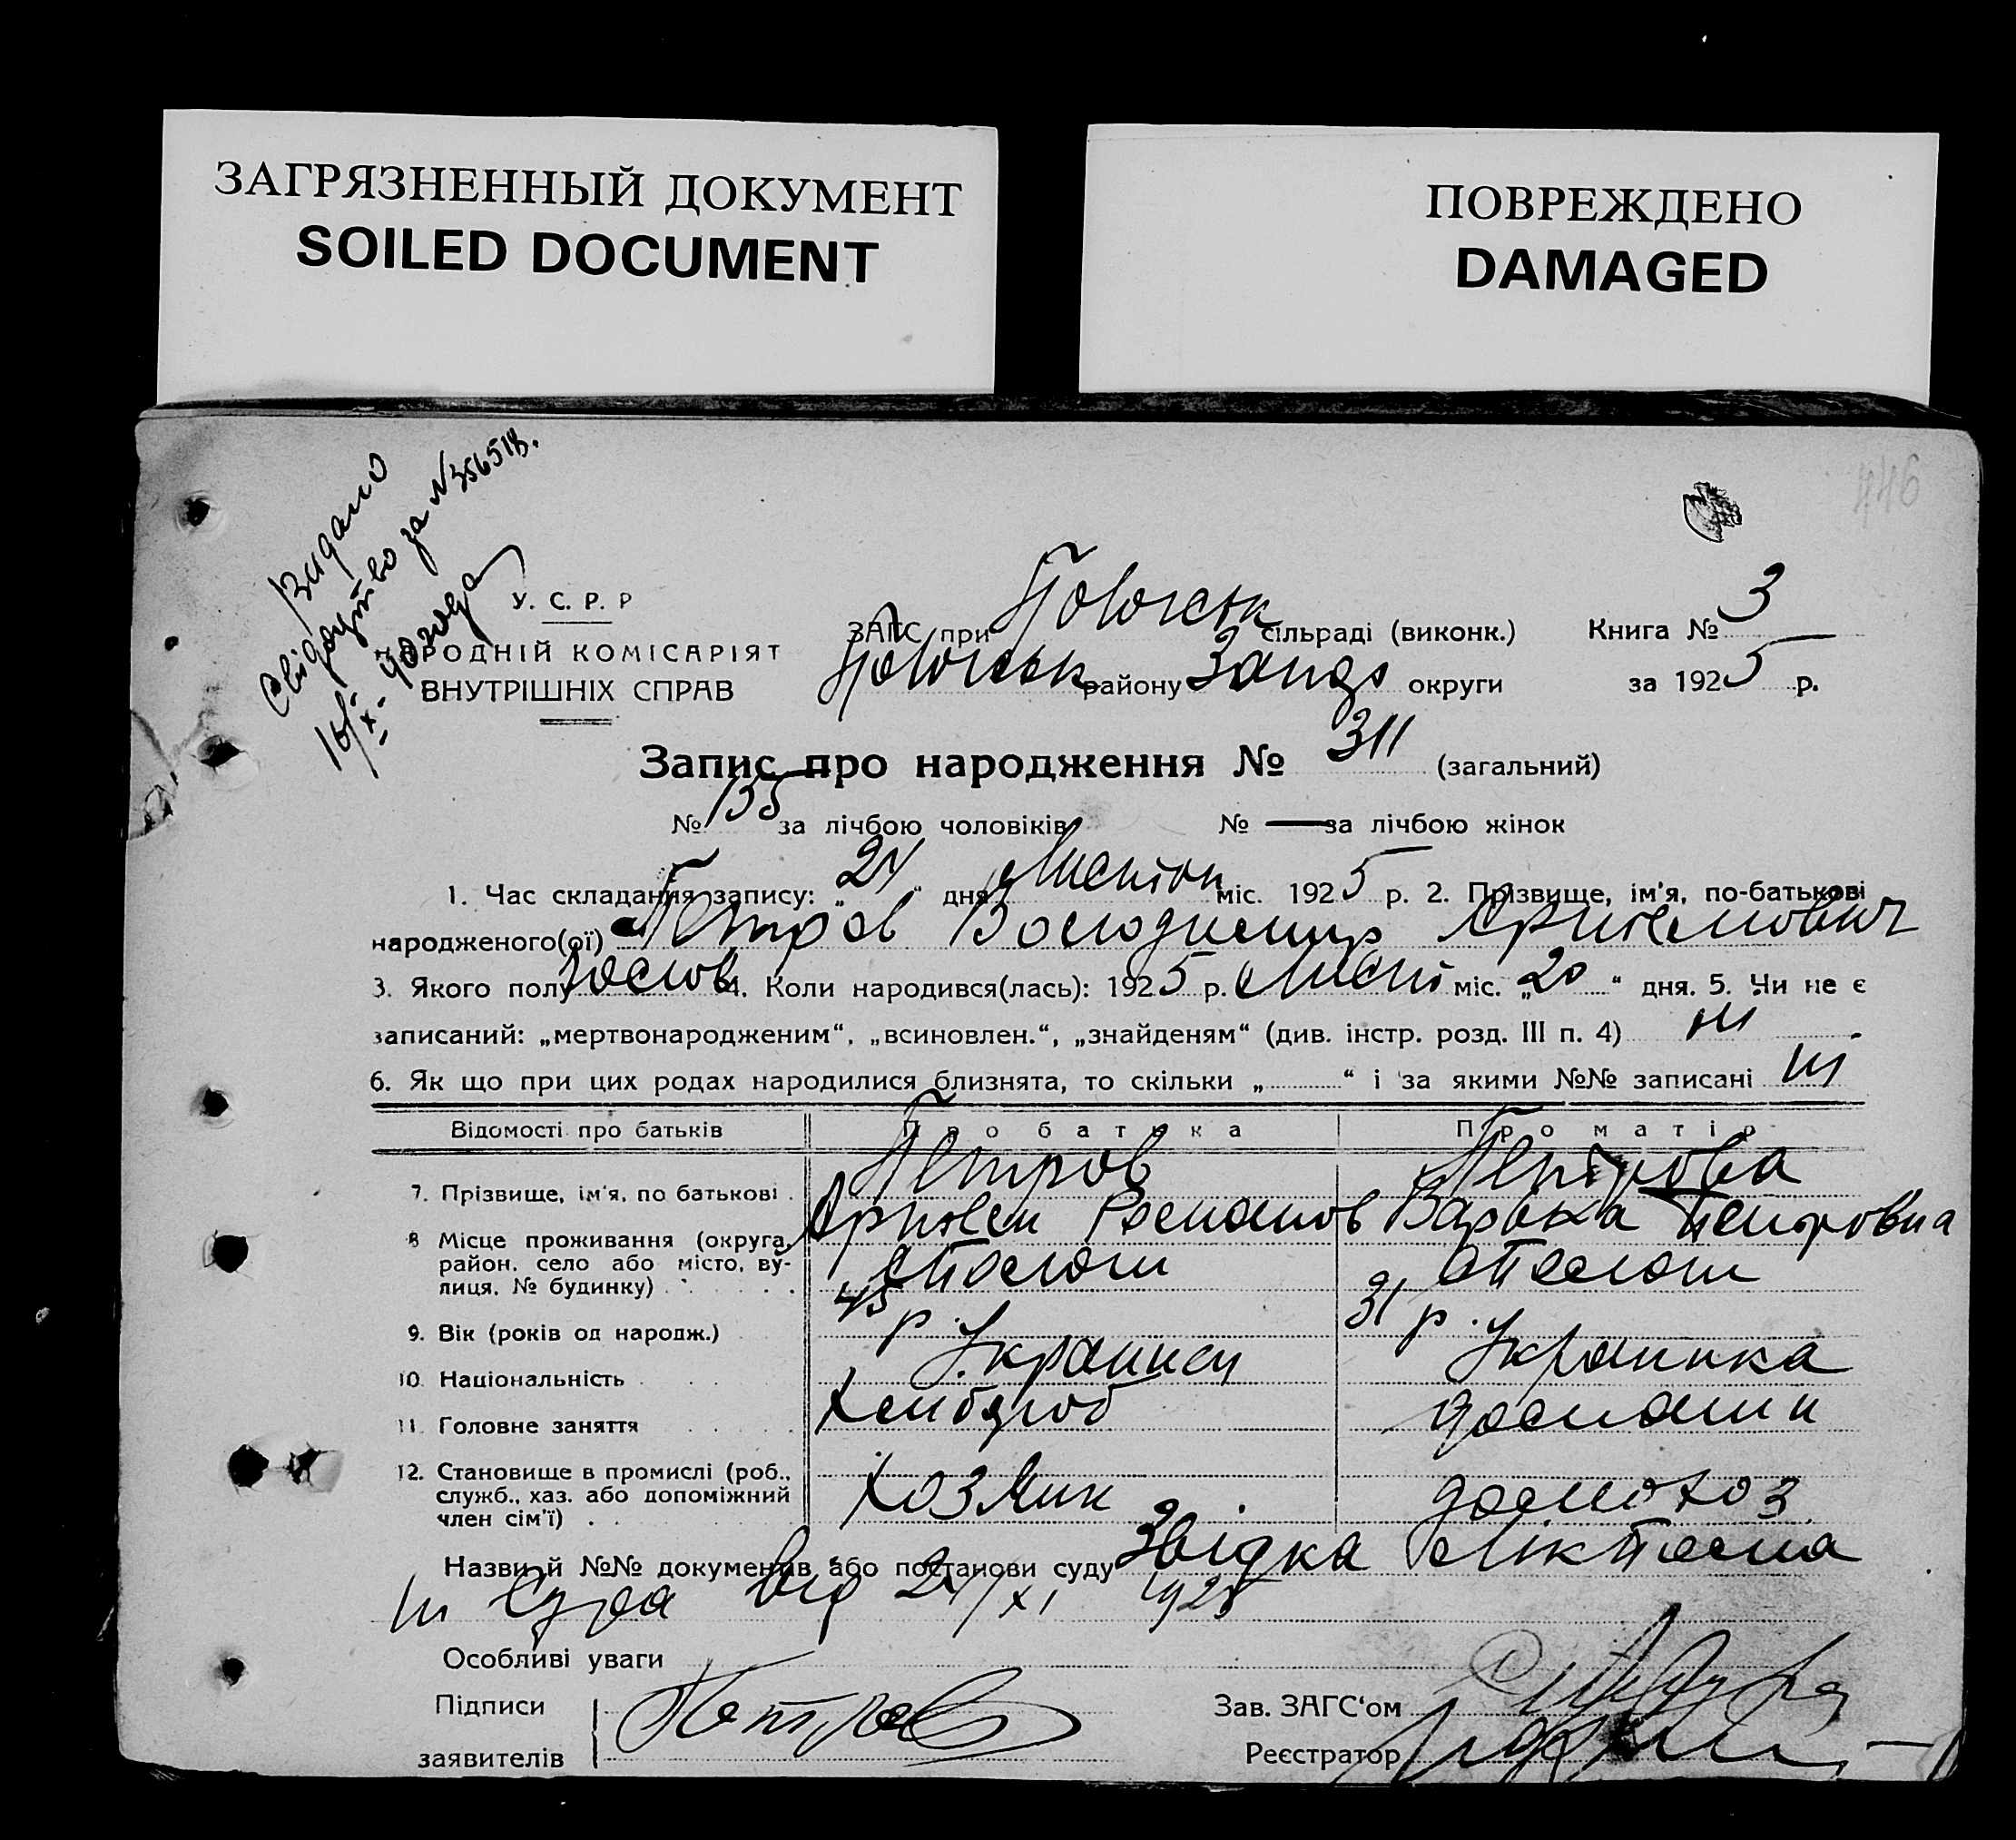 ЗАГРЯЗНЕННЫЙ ДОКУМЕНТ
SOILED DOCUMENT
ПОВРЕЖДЕНО
DAMAGED
446
Видано
Свідоцтво за №356518.
16/X
У. С. Р. Р
НАРОДНІЙ КОМІСАРІЯТ
ВНУТРІШНІХ СПРАВ
ЗАГС при Пологськ сільраді (виконк.) Книга № 3
Пологськ району Запор округи за 1925 р.
Запис про народження № 311 (загальний)
№ 155 за лічбою чоловіків № — за лічбою жінок
1. Час складання запису: „24“ дня Листоп міс. 1925 р. 2. Прізвище, ім'я, по-батькові
народженого(ої) Петров Володимир Артемович
3. Якого полу чолов 4. Коли народився(лась): 1925 р. Лист міс. „20“ дня. 5. Чи не є
записаний: „мертвонародженим“, „всиновлен.“, „знайденям“ (див. інстр. розд. III п. 4) ні
6. Як що при цих родах народилися близнята, то скільки „ “ і за якими №№ записані ні
Відомості про батьків Про батька Про матір
7. Прізвище, ім'я, по батькові Петров Петрова
Артем Романов Варвка Петровна
8 Місце проживання (округа,
район, село або місто, ву-
лиця, № будинку)
9. Вік (років од народж.) 45 р. 31 р.
10. Національність Украинец Украинка
11. Головне заняття Хлибороб домашн
12. Становище в промислі (роб.,
служб., хаз. або допоміжний
член сім'ї) Хозяин домохоз
Назви й №№ документів або постанови суду Звідка
від 24/XI 1925
Особливі уваги
Підписи
заявителів Петров
Зав. ЗАГС'ом
Реєстратор